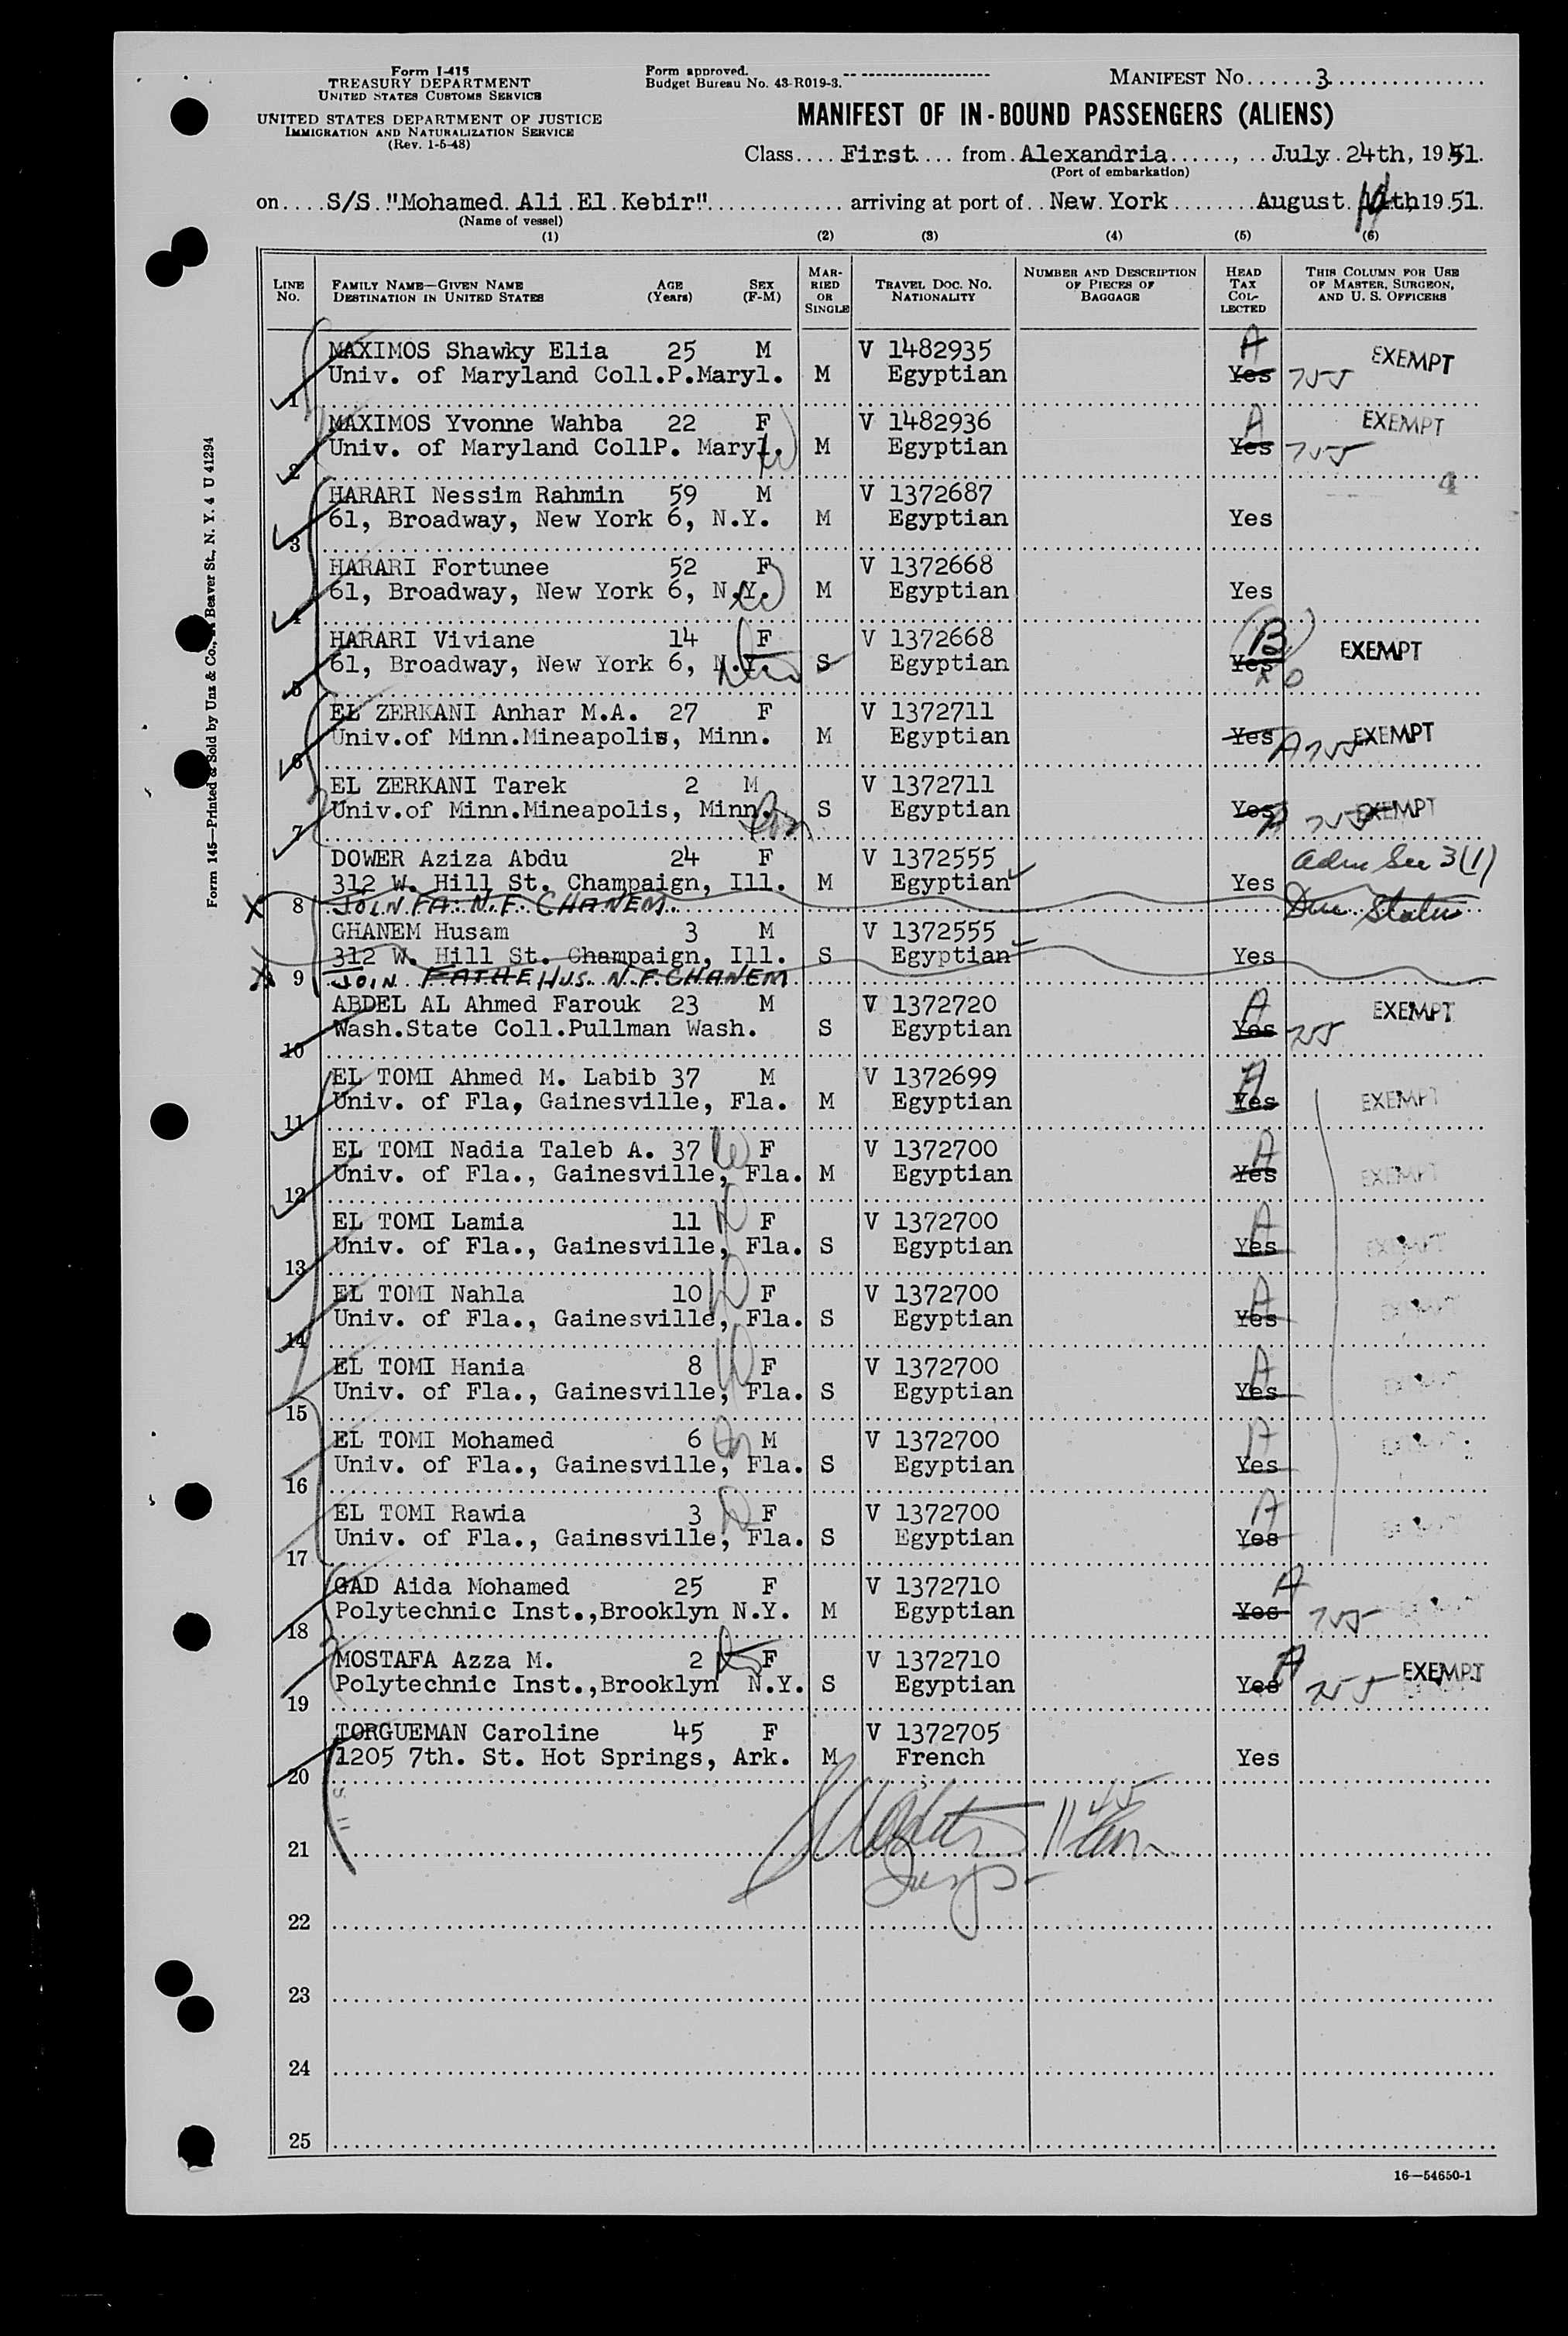 Form I-415
TREASURY DEPARTMENT
UNITED STATES CUSTOMS SERVICE
UNITED STATES DEPARTMENT OF JUSTICE
IMMIGRATION AND NATURALIZATION SERVICE
(Rev. 1-5-48)
Form approved.
Budget Bureau No. 43-R019-3.
MANIFEST No. 3
MANIFEST OF IN-BOUND PASSENGERS (ALIENS)
Class First from Alexandria, July 24th, 1951.
(Port of embarkation)
on S/S "Mohamed Ali El Kebir" arriving at port of New York August 1951.
(Name of vessel)
(1) (2) (3) (4) (5) (6)
LINE No. FAMILY NAME—GIVEN NAME DESTINATION IN UNITED STATES AGE (Years) SEX (F-M) MARRIED OR SINGLE TRAVEL DOC. NO. NATIONALITY NUMBER AND DESCRIPTION OF PIECES OF BAGGAGE HEAD TAX COLLECTED THIS COLUMN FOR USE OF MASTER, SURGEON, AND U. S. OFFICERS
MAXIMOS Shawky Elia 25 M V 1482935 A EXEMPT
1 Univ. of Maryland Coll.P.Maryl. M Egyptian Yes
MAXIMOS Yvonne Wahba 22 F V 1482936 A EXEMPT
2 Univ. of Maryland CollP. Maryl. M Egyptian Yes
4
HARARI Nessim Rahmin 59 M V 1372687
3 61, Broadway, New York 6, N.Y. M Egyptian Yes
HARARI Fortunee 52 F V 1372668
4 61, Broadway, New York 6, N.Y. M Egyptian Yes
HARARI Viviane 14 F V 1372668 B EXEMPT
5 61, Broadway, New York 6, N.Y. S Egyptian Yes
EL ZERKANI Anhar M.A. 27 F V 1372711
6 Univ.of Minn.Mineapolis, Minn. M Egyptian Yes A EXEMPT
EL ZERKANI Tarek 2 M V 1372711
7 Univ.of Minn.Mineapolis, Minn. S Egyptian Yes A EXEMPT
DOWER Aziza Abdu 24 F V 1372555 Adm Sec 3(1)
312 W. Hill St. Champaign, Ill. M Egyptian Yes
8 JOIN FA: N.F. CHANEM Status
GHANEM Husam 3 M V 1372555
312 W. Hill St. Champaign, Ill. S Egyptian Yes
9 JOIN FATHE HUS. N.F. CHANEM
ABDEL AL Ahmed Farouk 23 M V 1372720 A EXEMPT
10 Wash.State Coll.Pullman Wash. S Egyptian Yes
EL TOMI Ahmed M. Labib 37 M V 1372699 A
11 Univ. of Fla, Gainesville, Fla. M Egyptian Yes EXEMPT
EL TOMI Nadia Taleb A. 37 F V 1372700 A
12 Univ. of Fla., Gainesville, Fla. M Egyptian Yes EXEMPT
EL TOMI Lamia 11 F V 1372700 A
13 Univ. of Fla., Gainesville, Fla. S Egyptian Yes EXEMPT
EL TOMI Nahla 10 F V 1372700 A
14 Univ. of Fla., Gainesville, Fla. S Egyptian Yes
EL TOMI Hania 8 F V 1372700 A
15 Univ. of Fla., Gainesville, Fla. S Egyptian Yes
EL TOMI Mohamed 6 M V 1372700 A
16 Univ. of Fla., Gainesville, Fla. S Egyptian Yes
EL TOMI Rawia 3 F V 1372700 A
17 Univ. of Fla., Gainesville, Fla. S Egyptian Yes
GAD Aida Mohamed 25 F V 1372710 A
18 Polytechnic Inst.,Brooklyn N.Y. M Egyptian Yes
MOSTAFA Azza M. 2 F V 1372710 A EXEMPT
19 Polytechnic Inst.,Brooklyn N.Y. S Egyptian Yes
TORGUEMAN Caroline 45 F V 1372705
20 1205 7th. St. Hot Springs, Ark. M French Yes
21
22
23
24
25
16—54650-1